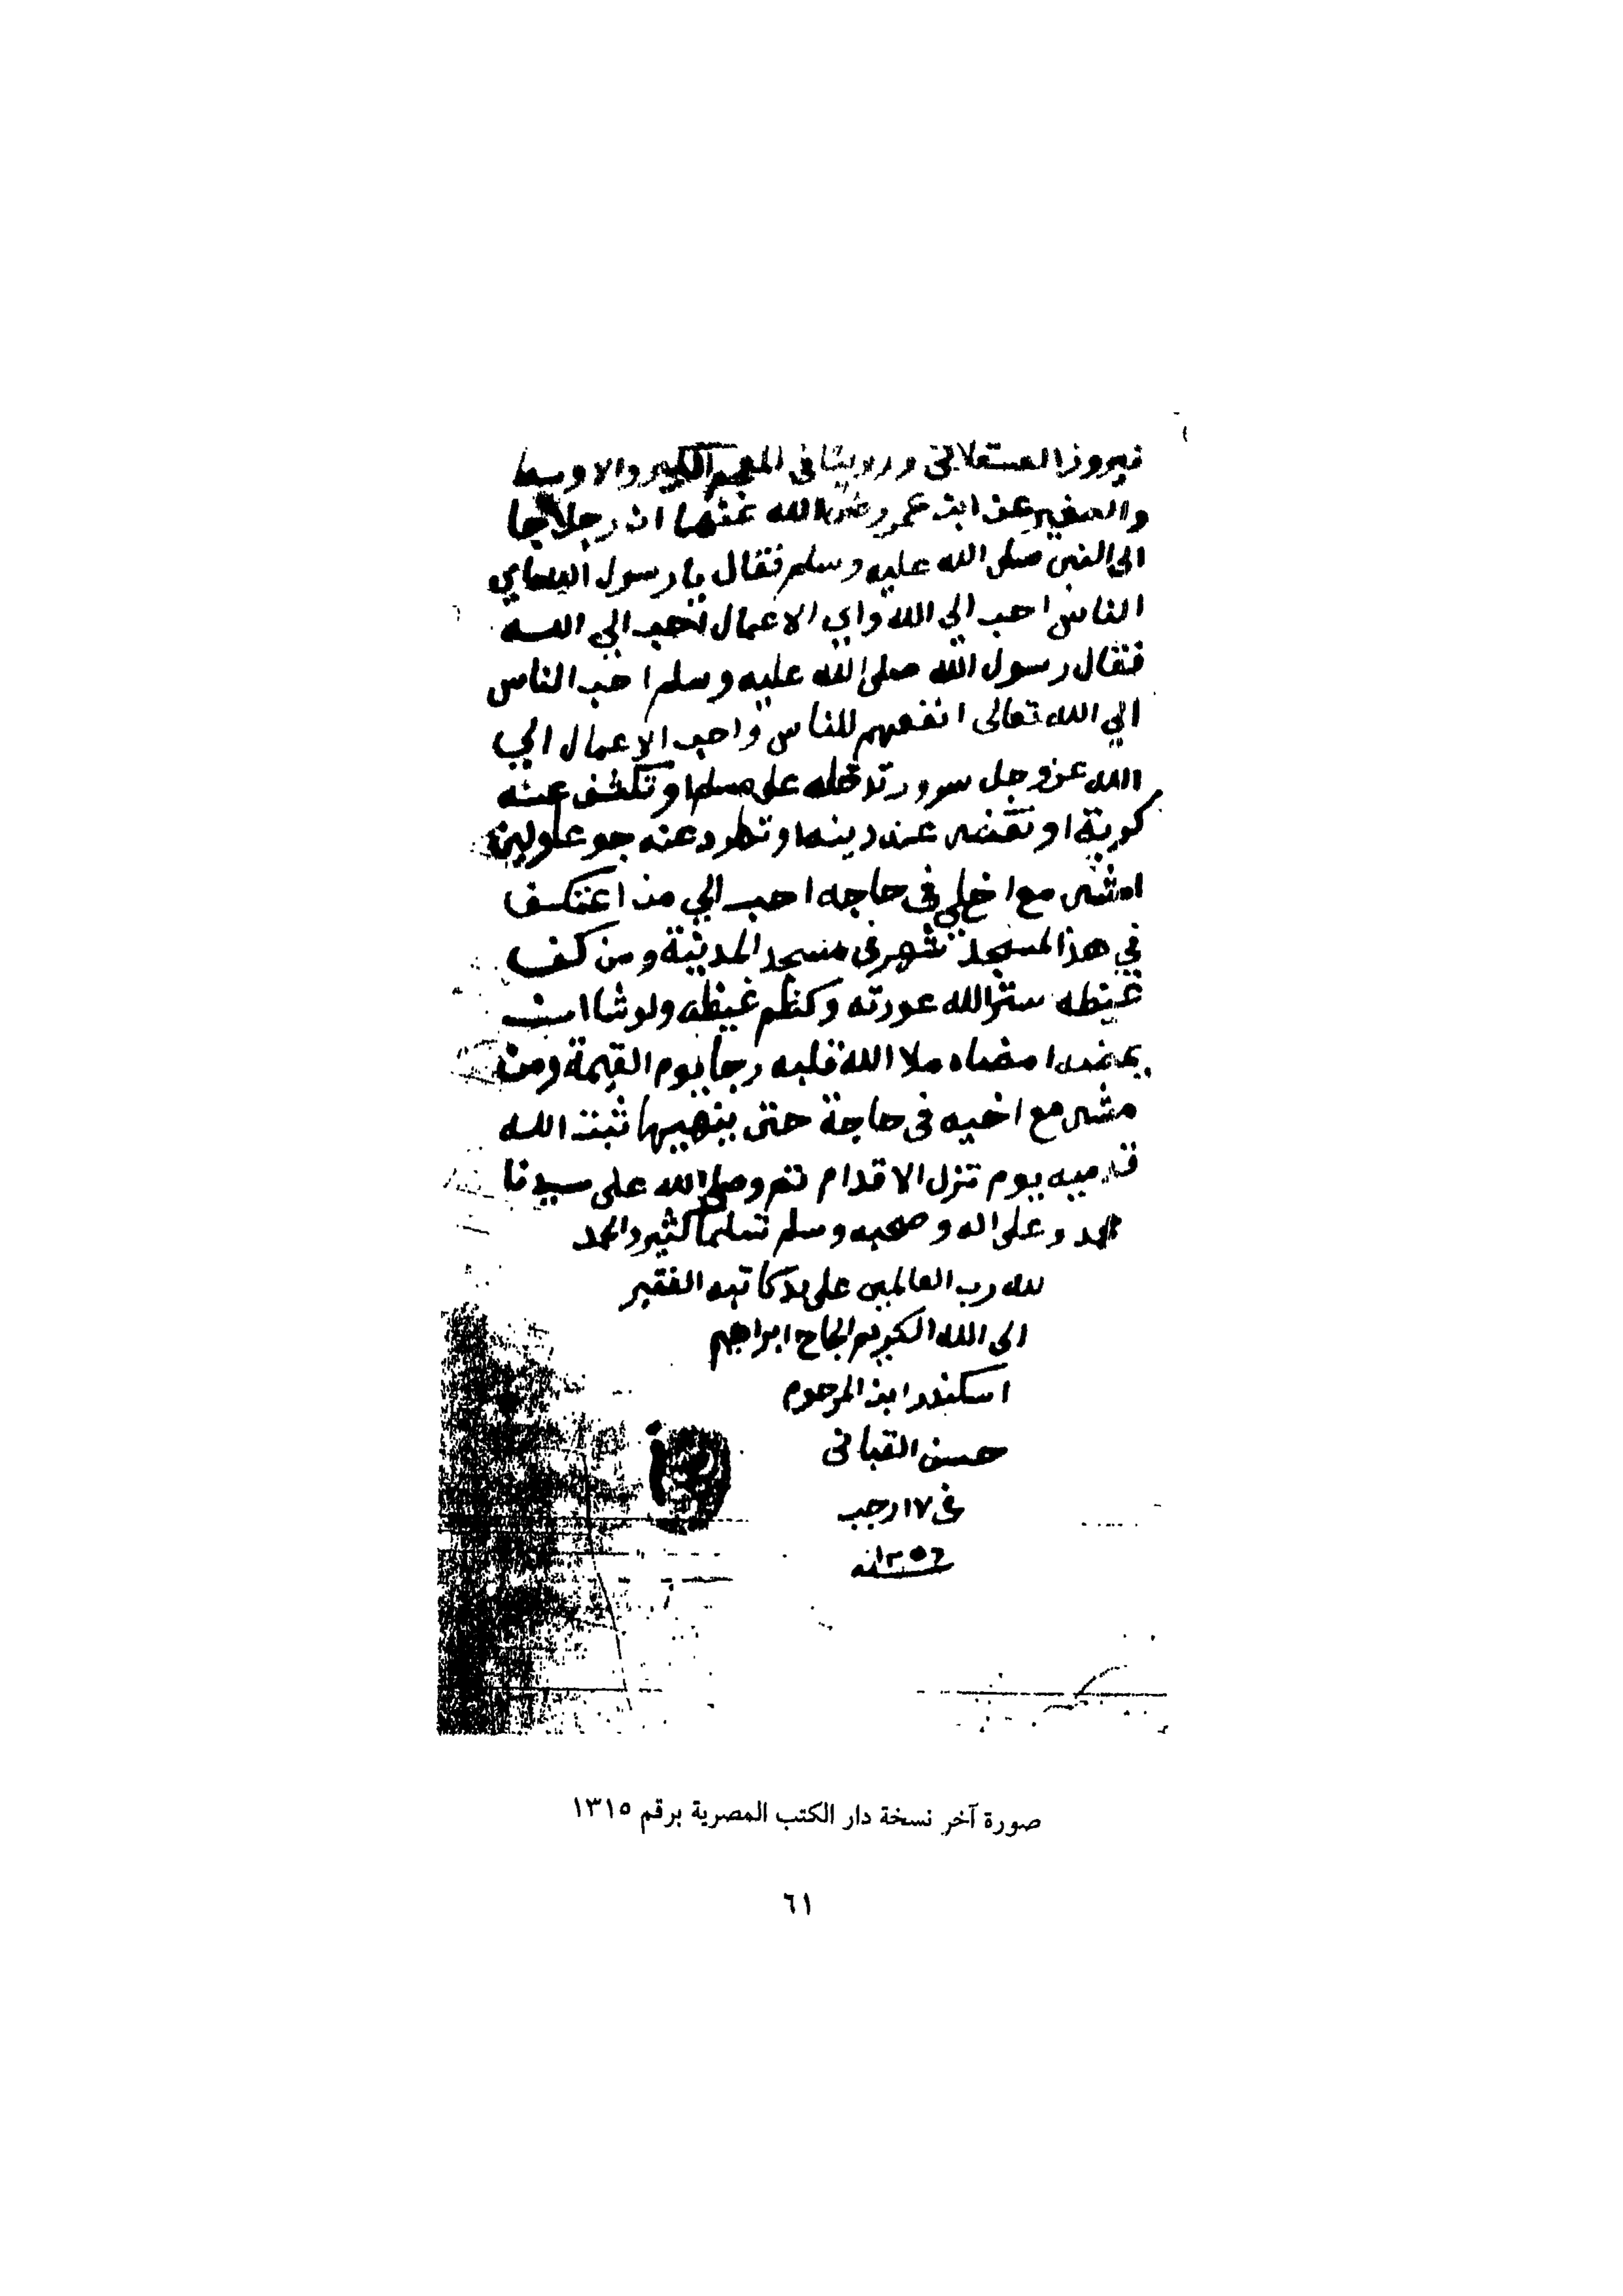 نيروز العسقلاني وروينا في المعجم الكبير والاوسط
والصغير عن ابن عمر رضي الله عنهما ان رجلا جا
الى النبي صلى الله عليه وسلم فقال يا رسول الله اي
الناس احب الي الله واي الاعمال احب الي الله
فقال رسول الله صلى الله عليه وسلم احب الناس
الي الله تعالى انفعهم للناس واحب الاعمال الي
الله عز وجل سرور تدخله على مسلم او تكشف عنه
كربة او تقضى عنه دينه او تطرد عنه جوعا ولين
امشى مع اخي في حاجه احب الي من اعتكف
في هذا المسجد شهر في مسجد المدينة ومن كف
غيظه ستر الله عورته وكظم غيظه ولو شا ان
يمضه امضاه ملا الله قلبه رجا يوم القيمة ومن
مشى مع اخيه في حاجة حتى ينهيها ثبت الله
قدميه يوم تزل الاقدام تم وصلى الله على سيدنا
محمد وعلى اله وصحبه وسلم تسليما كثير والحمد
لله رب العالمين على يد كاتبه الفقير
الى الله الكريم الحاج ابراهيم
اسكندر ابن المرحوم
حسن القباني
في ١٧ رجب
سنه ١٣٥٦
صورة آخر نسخة دار الكتب المصرية برقم ١٣١٥
٦١